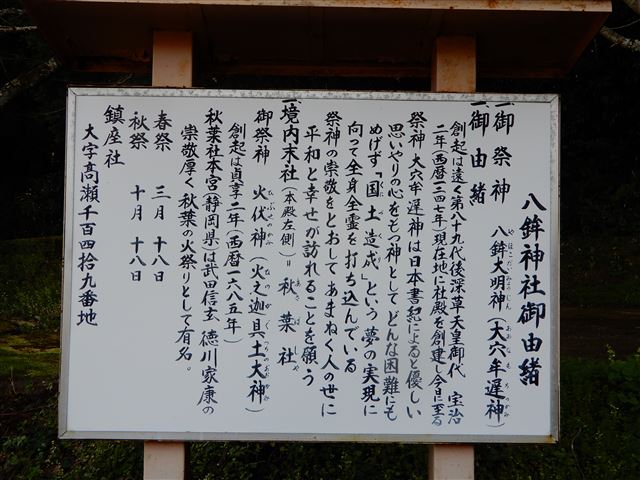 八鉾神社御由緒
一、御祭神 八鉾大明神(大穴牟遅神)
一、御由緒
創起は遠く第八十九代後深草天皇御代、宝治
二年(西暦一二四七年)現在地に社殿を創建し今日に至る
祭神 大穴牟遅神は日本書紀によると優しい
思いやりの心をもつ神としてどんな困難にも
めげず「国土造成」という夢の実現に
向って全身全霊を打ち込んでいる
祭神の崇敬をとおしてあまねく人の世に
平和と幸せが訪れることを願う
一、境内末社(本殿左側)=秋葉社
御祭神 火伏神(火之迦具土大神)
創起は貞享二年(西暦一六八五年)
秋葉社本宮(静岡県)は武田信玄 徳川家康の
崇敬厚く秋葉の火祭りとして有名。
春祭 三月十八日
秋祭 十月十八日
鎮座社
大字高瀬千百四拾九番地